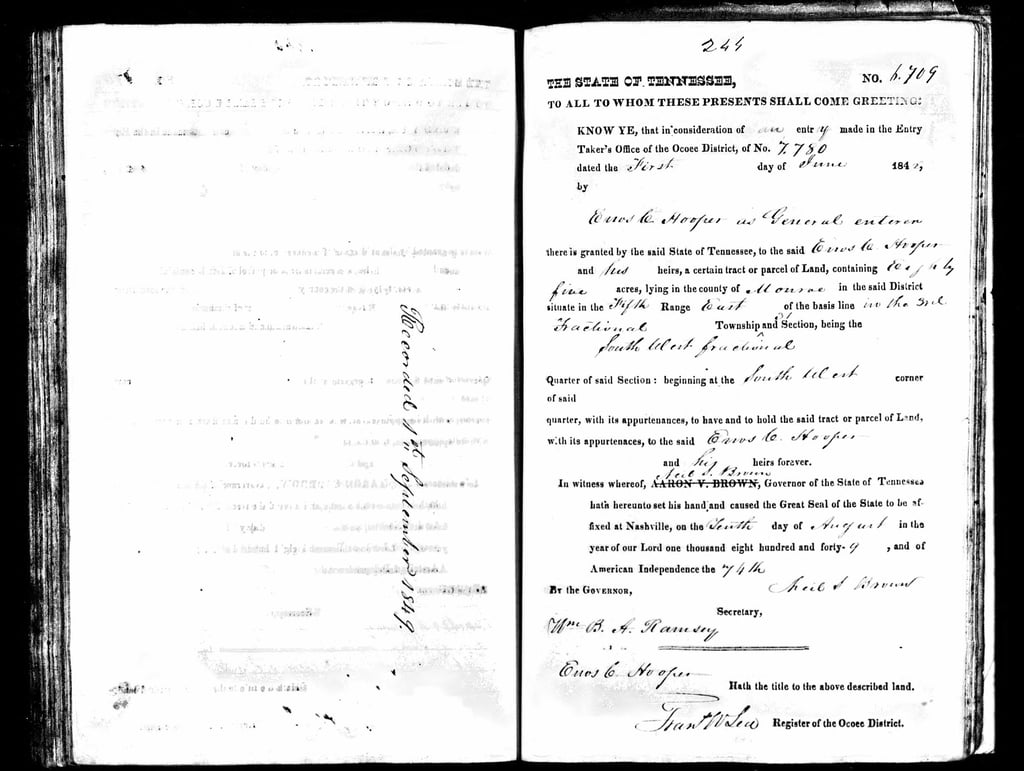 Recorded 1st September 1849.
244
THE STATE OF TENNESSEE, NO. 6.709
TO ALL TO WHOM THESE PRESENTS SHALL COME GREETING:
KNOW YE, that in consideration of an entry made in the Entry
Taker's Office of the Ocoee District, of No. 7.780
dated the First day of June 184
by
Enos C. Hooper as General enterer
there is granted by the said State of Tennessee, to the said Enos C. Hooper
and his heirs, a certain tract or parcel of Land, containing Eighty
five acres, lying in the county of Monroe in the said District
situate in the Fifth Range East of the basis line in the 3rd
Fractional Township and Section, being the
South West fractional
Quarter of said Section: beginning at the South West corner
of said
quarter, with its appurtenances, to have and to hold the said tract or parcel of Land,
with its appurtenaces, to the said Enos C. Hooper
and his heirs forever.
Neil S. Brown
In witness whereof, AARON V. BROWN, Governor of the State of Tennessee
hath hereunto set his hand and caused the Great Seal of the State to be af-
fixed at Nashville, on the Tenth day of August in the
year of our Lord one thousand eight hundred and forty-9, and of
American Independence the 74th
BY the GOVERNOR, Neil S Brown
Secretary,
Wm B. A. Ramsey
Enos C. Hooper
Hath the title to the above described land.
Register of the Ocoee District.